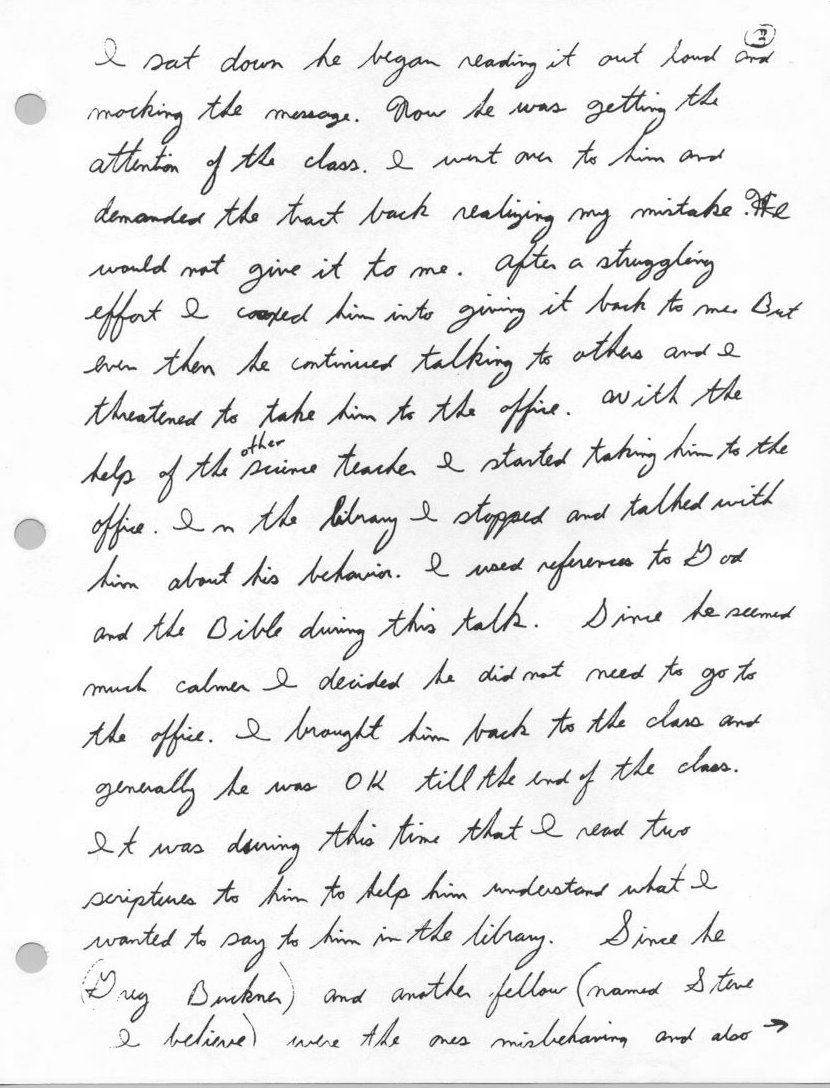 2
I sat down he began reading it out loud and
mocking the message. Now he was getting the
attention of the class. I went over to him and
demanded the tract back realizing my mistake. He
would not give it to me. After a struggling
effort I coaxed him into giving it back to me. But
even then he continued talking to others and I
threatened to take him to the office. With the
other
help of the science teacher I started taking him to the
office. In the library I stopped and talked with
him about his behavior. I used references to God
and the Bible during this talk. Since he seemed
much calmer I decided he did not need to go to
the office. I brought him back to the class and
generally he was OK till the end of the class.
It was during this time that I read two
scriptures to him to help him understand what I
wanted to say to him in the library. Since he
(Greg Buckner) and another fellow (named Steve
I believe) were the ones misbehaving and also →